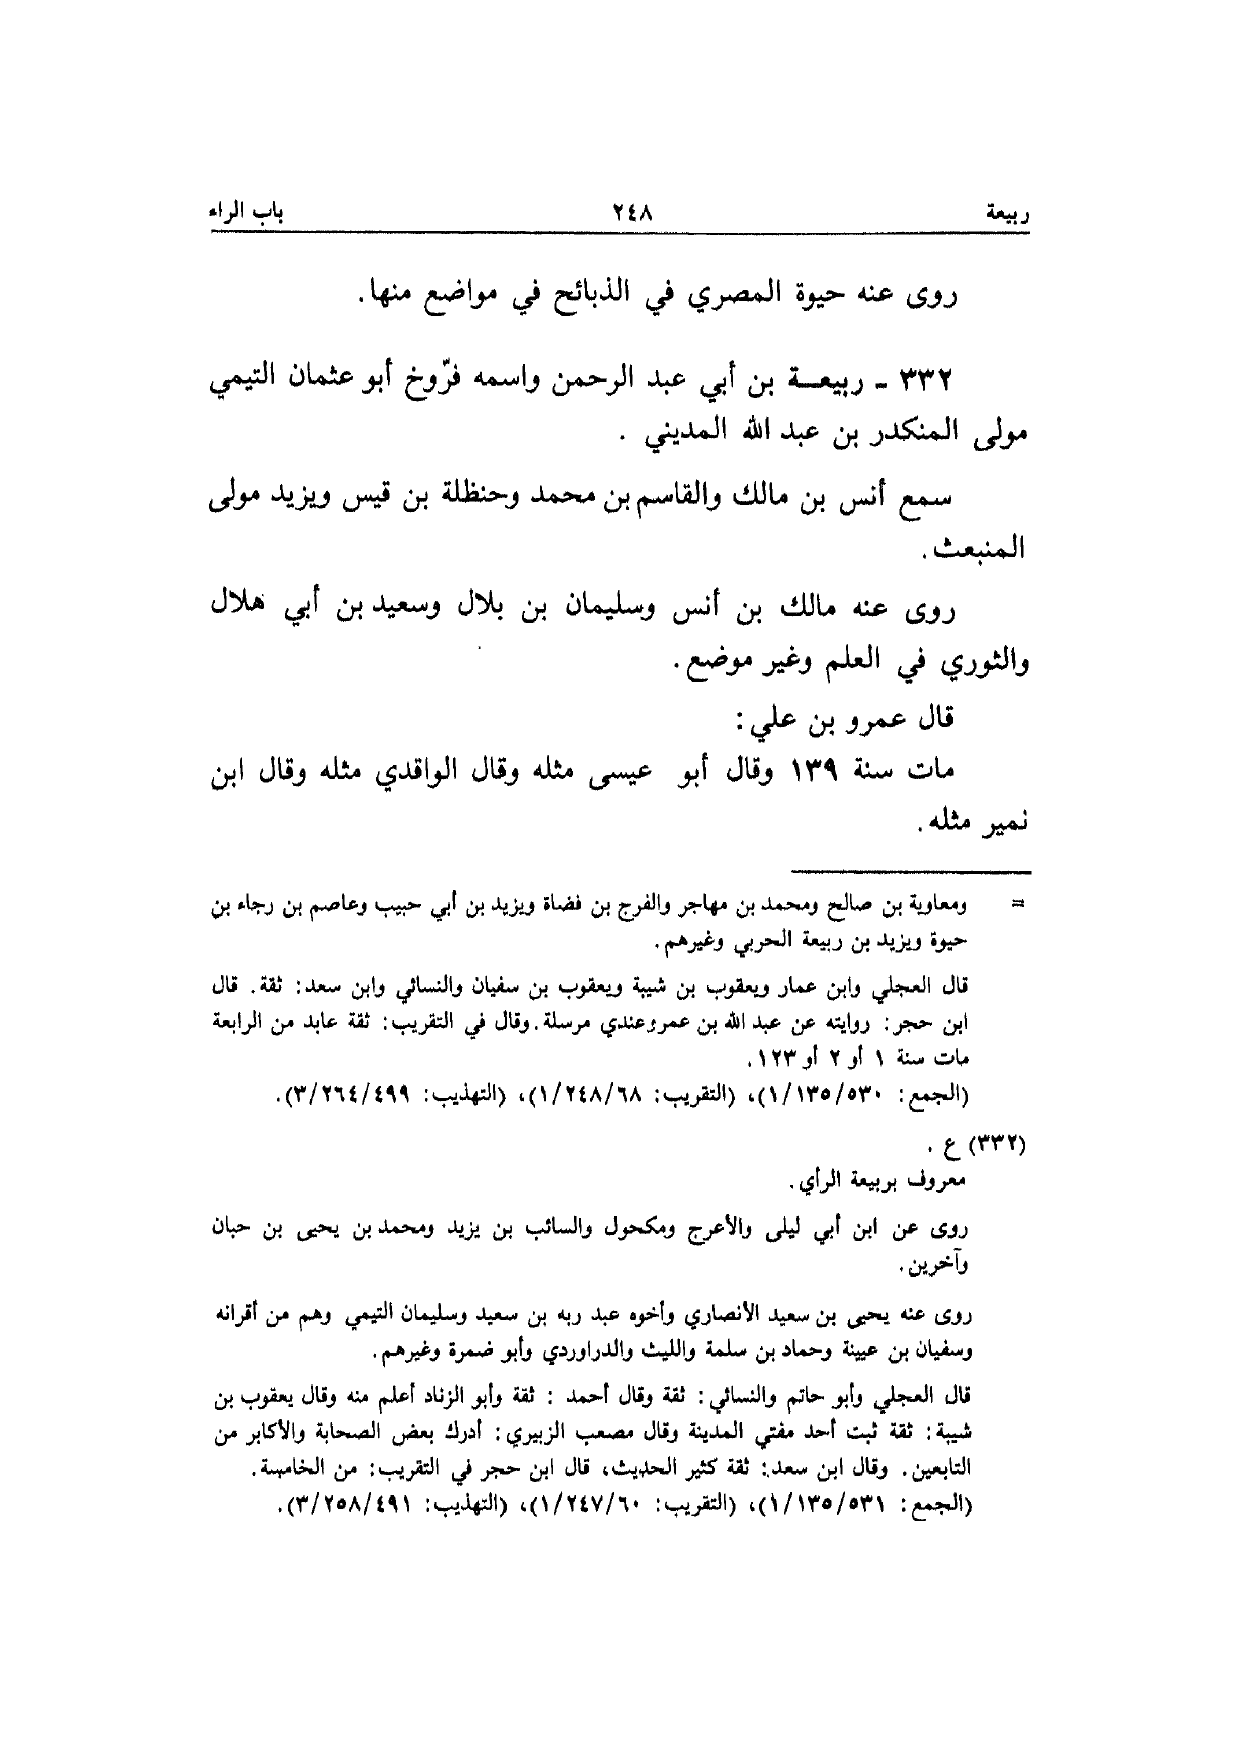 ربيعة ٢٤٨ باب الراء
روى عنه حيوة المصري في الذبائح في مواضع منها.
٣٣٢ ـ ربيعـة بن أبي عبد الرحمن واسمه فرّوخ أبو عثمان التيمي
مولى المنكدر بن عبد الله المديني .
سمع أنس بن مالك والقاسم بن محمد وحنظلة بن قيس ويزيد مولى
المنبعث.
روى عنه مالك بن أنس وسليمان بن بلال وسعيد بن أبي هلال
والثوري في العلم وغير موضع.
قال عمرو بن علي:
مات سنة ١٣٩ وقال أبو عيسى مثله وقال الواقدي مثله وقال ابن
نمير مثله.
= ومعاوية بن صالح ومحمد بن مهاجر والفرج بن فضاة ويزيد بن أبي حبيب وعاصم بن رجاء بن
حيوة ويزيد بن ربيعة الحربي وغيرهم.
قال العجلي وابن عمار ويعقوب بن شيبة ويعقوب بن سفيان والنسائي وابن سعد: ثقة. قال
ابن حجر: روايته عن عبد الله بن عمرو عندي مرسلة. وقال في التقريب: ثقة عابد من الرابعة
مات سنة ١ أو ٢ أو ١٢٣.
(الجمع: ١/١٣٥/٥٣٠)، (التقريب: ١/٢٤٨/٦٨)، (التهذيب: ٣/٢٦٤/٤٩٩).
(٣٣٢) ع .
معروف بربيعة الرأي.
روى عن ابن أبي ليلى والأعرج ومكحول والسائب بن يزيد ومحمد بن يحيى بن حبان
وآخرين.
روى عنه يحيى بن سعيد الأنصاري وأخوه عبد ربه بن سعيد وسليمان التيمي وهم من أقرانه
وسفيان بن عيينة وحماد بن سلمة والليث والدراوردي وأبو ضمرة وغيرهم.
قال العجلي وأبو حاتم والنسائي: ثقة وقال أحمد : ثقة وأبو الزناد أعلم منه وقال يعقوب بن
شيبة: ثقة ثبت أحد مفتي المدينة وقال مصعب الزبيري: أدرك بعض الصحابة والأكابر من
التابعين. وقال ابن سعد: ثقة كثير الحديث، قال ابن حجر في التقريب: من الخامسة.
(الجمع: ١/١٣٥/٥٣١)، (التقريب: ١/٢٤٧/٦٠)، (التهذيب: ٣/٢٥٨/٤٩١).